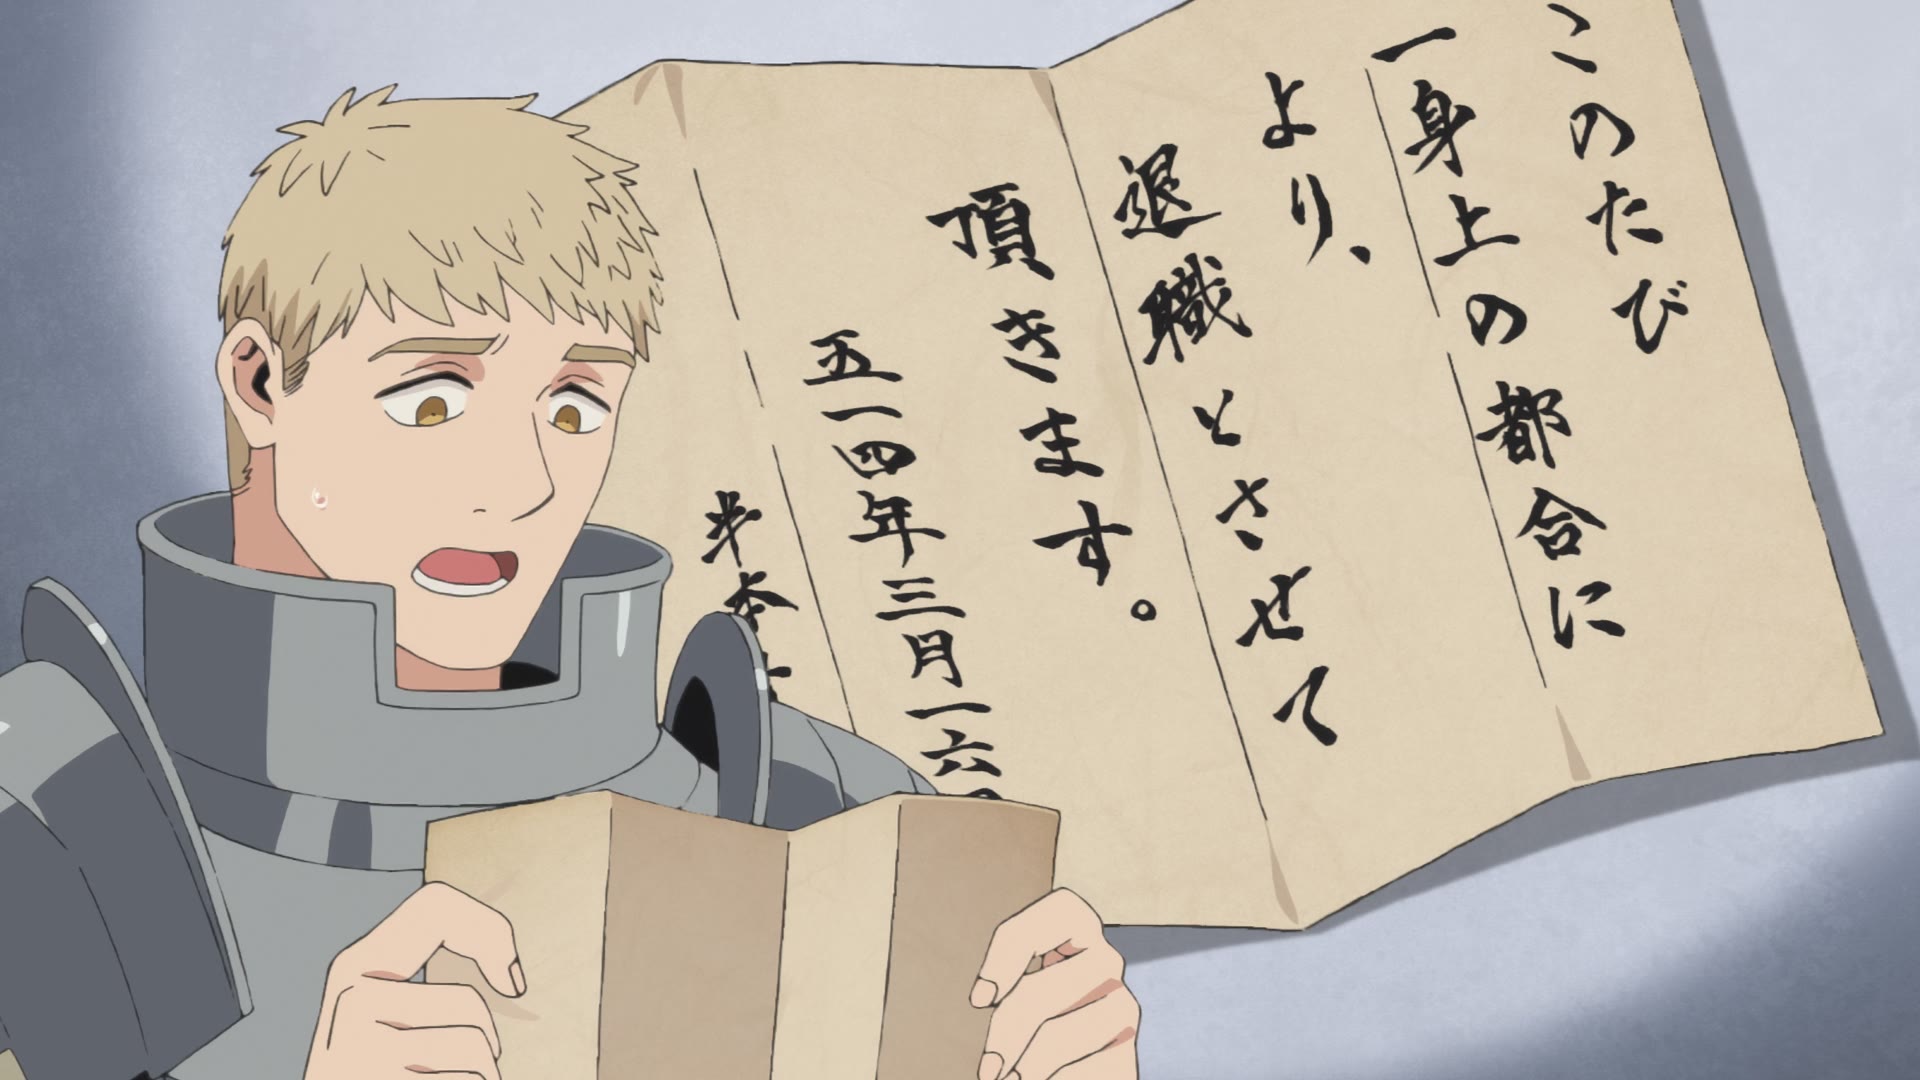 このたび
一身上の都合に
より、
退職とさせて
頂きます。
五一四年三月一六
半本